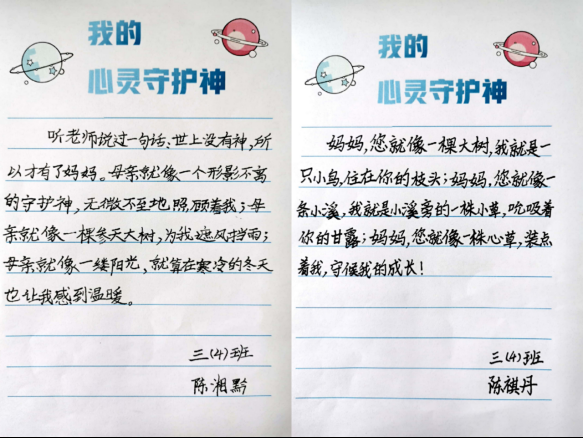 我的
心灵守护神
听老师说过一句话:世上没有神,所
以才有了妈妈。母亲就像一个形影不离
的守护神,无微不至地照顾着我;母
亲就像一棵参天大树,为我遮风挡雨;
母亲就像一缕阳光,就算在寒冷的冬天
也让我感到温暖。
三(4)班
陈湘黔
我的
心灵守护神
妈妈,您就像一棵大树,我就是一
只小鸟,住在你的枝头;妈妈,您就像一
条小溪,我就是小溪旁的一株小草,吮吸着
你的甘露;妈妈,您就像一株心草,装点
着我,守候我的成长!
三(4)班
陈祺丹